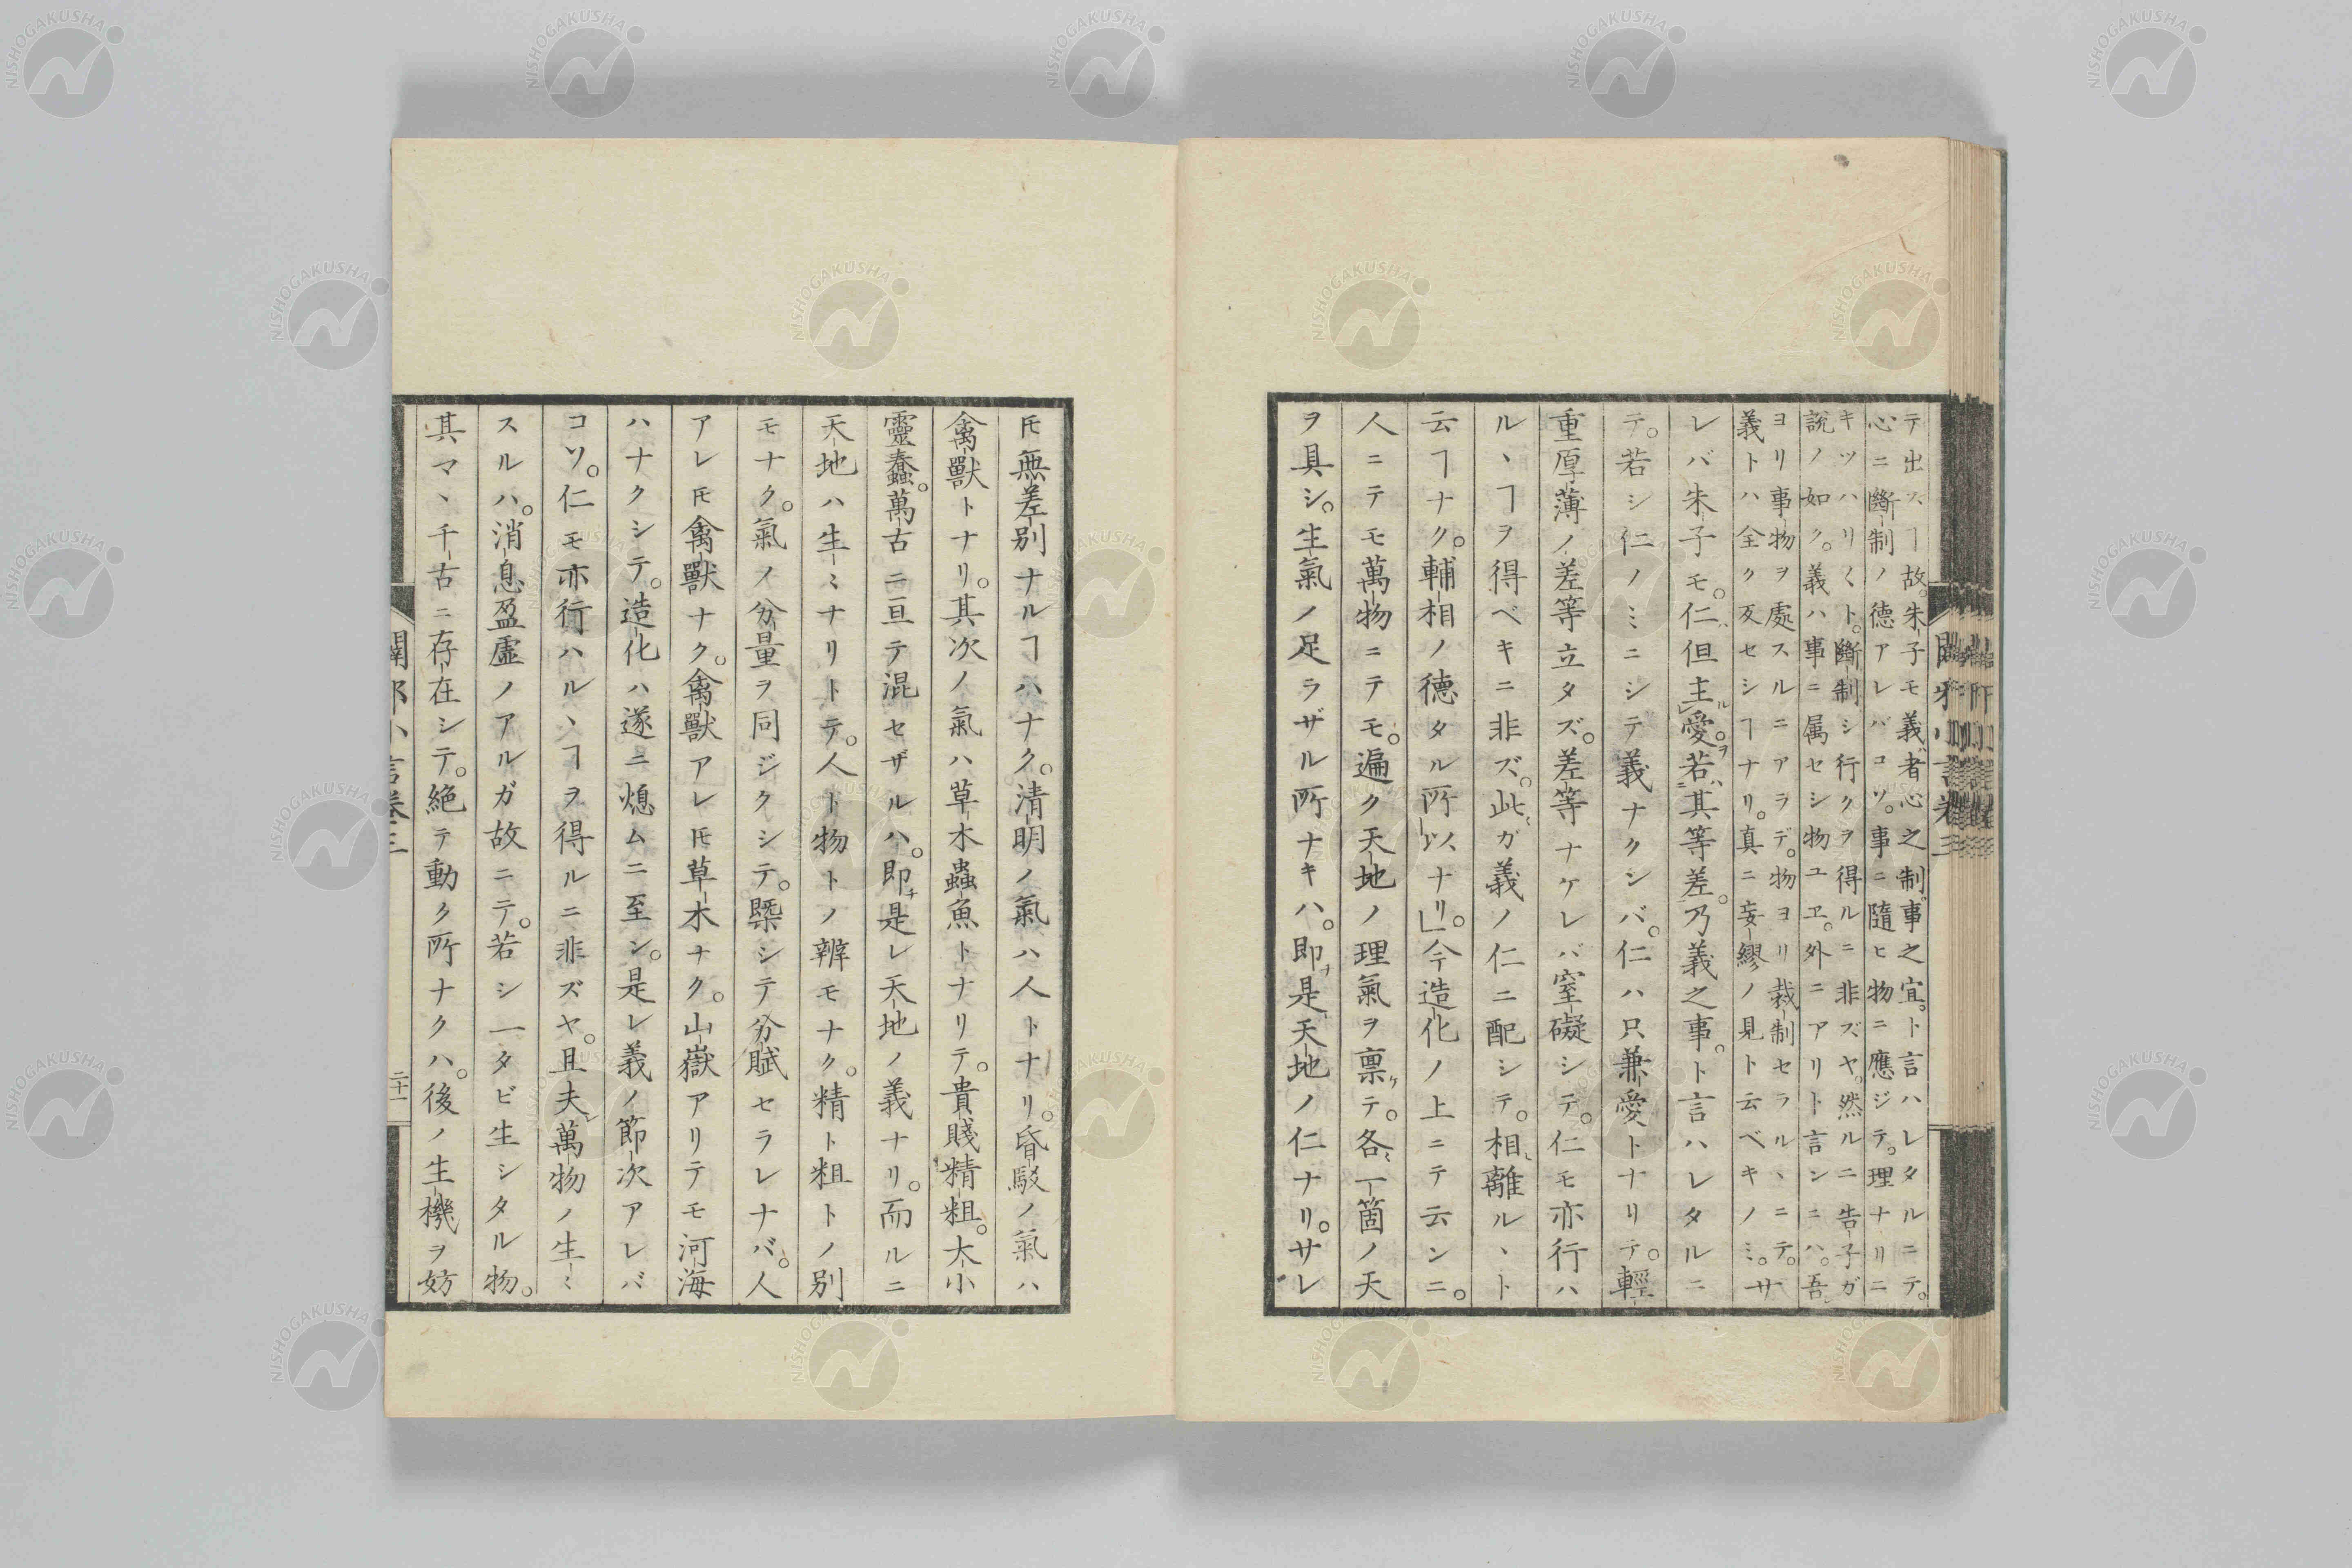 テ出ス ヿ故。朱子モ義者心之制。事之宜。ト言ハレタルニテ。
心ニ斷制ノ德アレバコソ。事ニ隨ヒ物ニ應ジテ。理ナリニ
キツハリ〱ト。斷制シ行クヲ得ルニ非ズヤ。然ルニ告子ガ
說ノ如ク。義ハ事ニ属セシ物ユヱ。外ニアリト言ンニハ。吾
ヨリ事物ヲ處スルニアラデ。物ヨリ裁制セラルヽニテ。
義トハ全ク反セシヿナリ。真ニ妄繆ノ見ト云ベキノミ。サ
レバ朱子モ。仁但主愛。若其等差。乃義之事。ト言ハレタルニ
テ。若シ仁ノミニシテ義ナクシバ。仁ハ只兼愛トナリテ。輕
重厚薄ノ差等立タズ。差等ナケレバ窒礙シテ。仁モ亦行ハ
ルヽヿヲ得ベキニ非ズ。此ガ義ノ仁ニ配シテ。相離ルヽト
云ヿナク。輔相ノ德タル所以ナリ。」今造化ノ上ニテ云ンニ。
人ニテモ萬物ニテモ。遍ク天地ノ理氣ヲ稟ケテ。各一箇ノ天
ヲ具シ。生氣ノ足ラザル所ナキハ。即是天地ノ仁ナリ。サレ
𪜈無差別ナルヿハナク。清明ノ氣ハ人トナリ。昏駁ノ氣ハ
禽獸トナリ。其次ノ氣ハ草木蟲魚トナリテ。貴賤精粗。大小
靈蠢。萬古ニ亘テ混セザルハ。即チ是レ天地ノ義ナリ。而ルニ
天地ハ生〻ナリトテ。人ト物トノ辨モナク。精ト粗トノ別
モナク。氣ノ分量ヲ同ジクシテ。槩シテ分賦セラレナバ。人
アレ𪜈禽獸ナク。禽獸アレ𪜈草木ナク。山嶽アリテモ河海
ハナクシテ。造化ハ遂ニ熄ムニ至ン。是レ義ノ節次アレバ
コソ。仁モ亦行ハルヽヿヲ得ルニ非ズヤ。且夫萬物ノ生〻
スルハ。消息盈虛ノアルガ故ニテ。若シ一タビ生シタル物。
其マヽ千古ニ存在シテ。絕テ動ク所ナクハ。後ノ生機ヲ妨
闢邪小言卷三
二十一
NISHOGAKUSHA